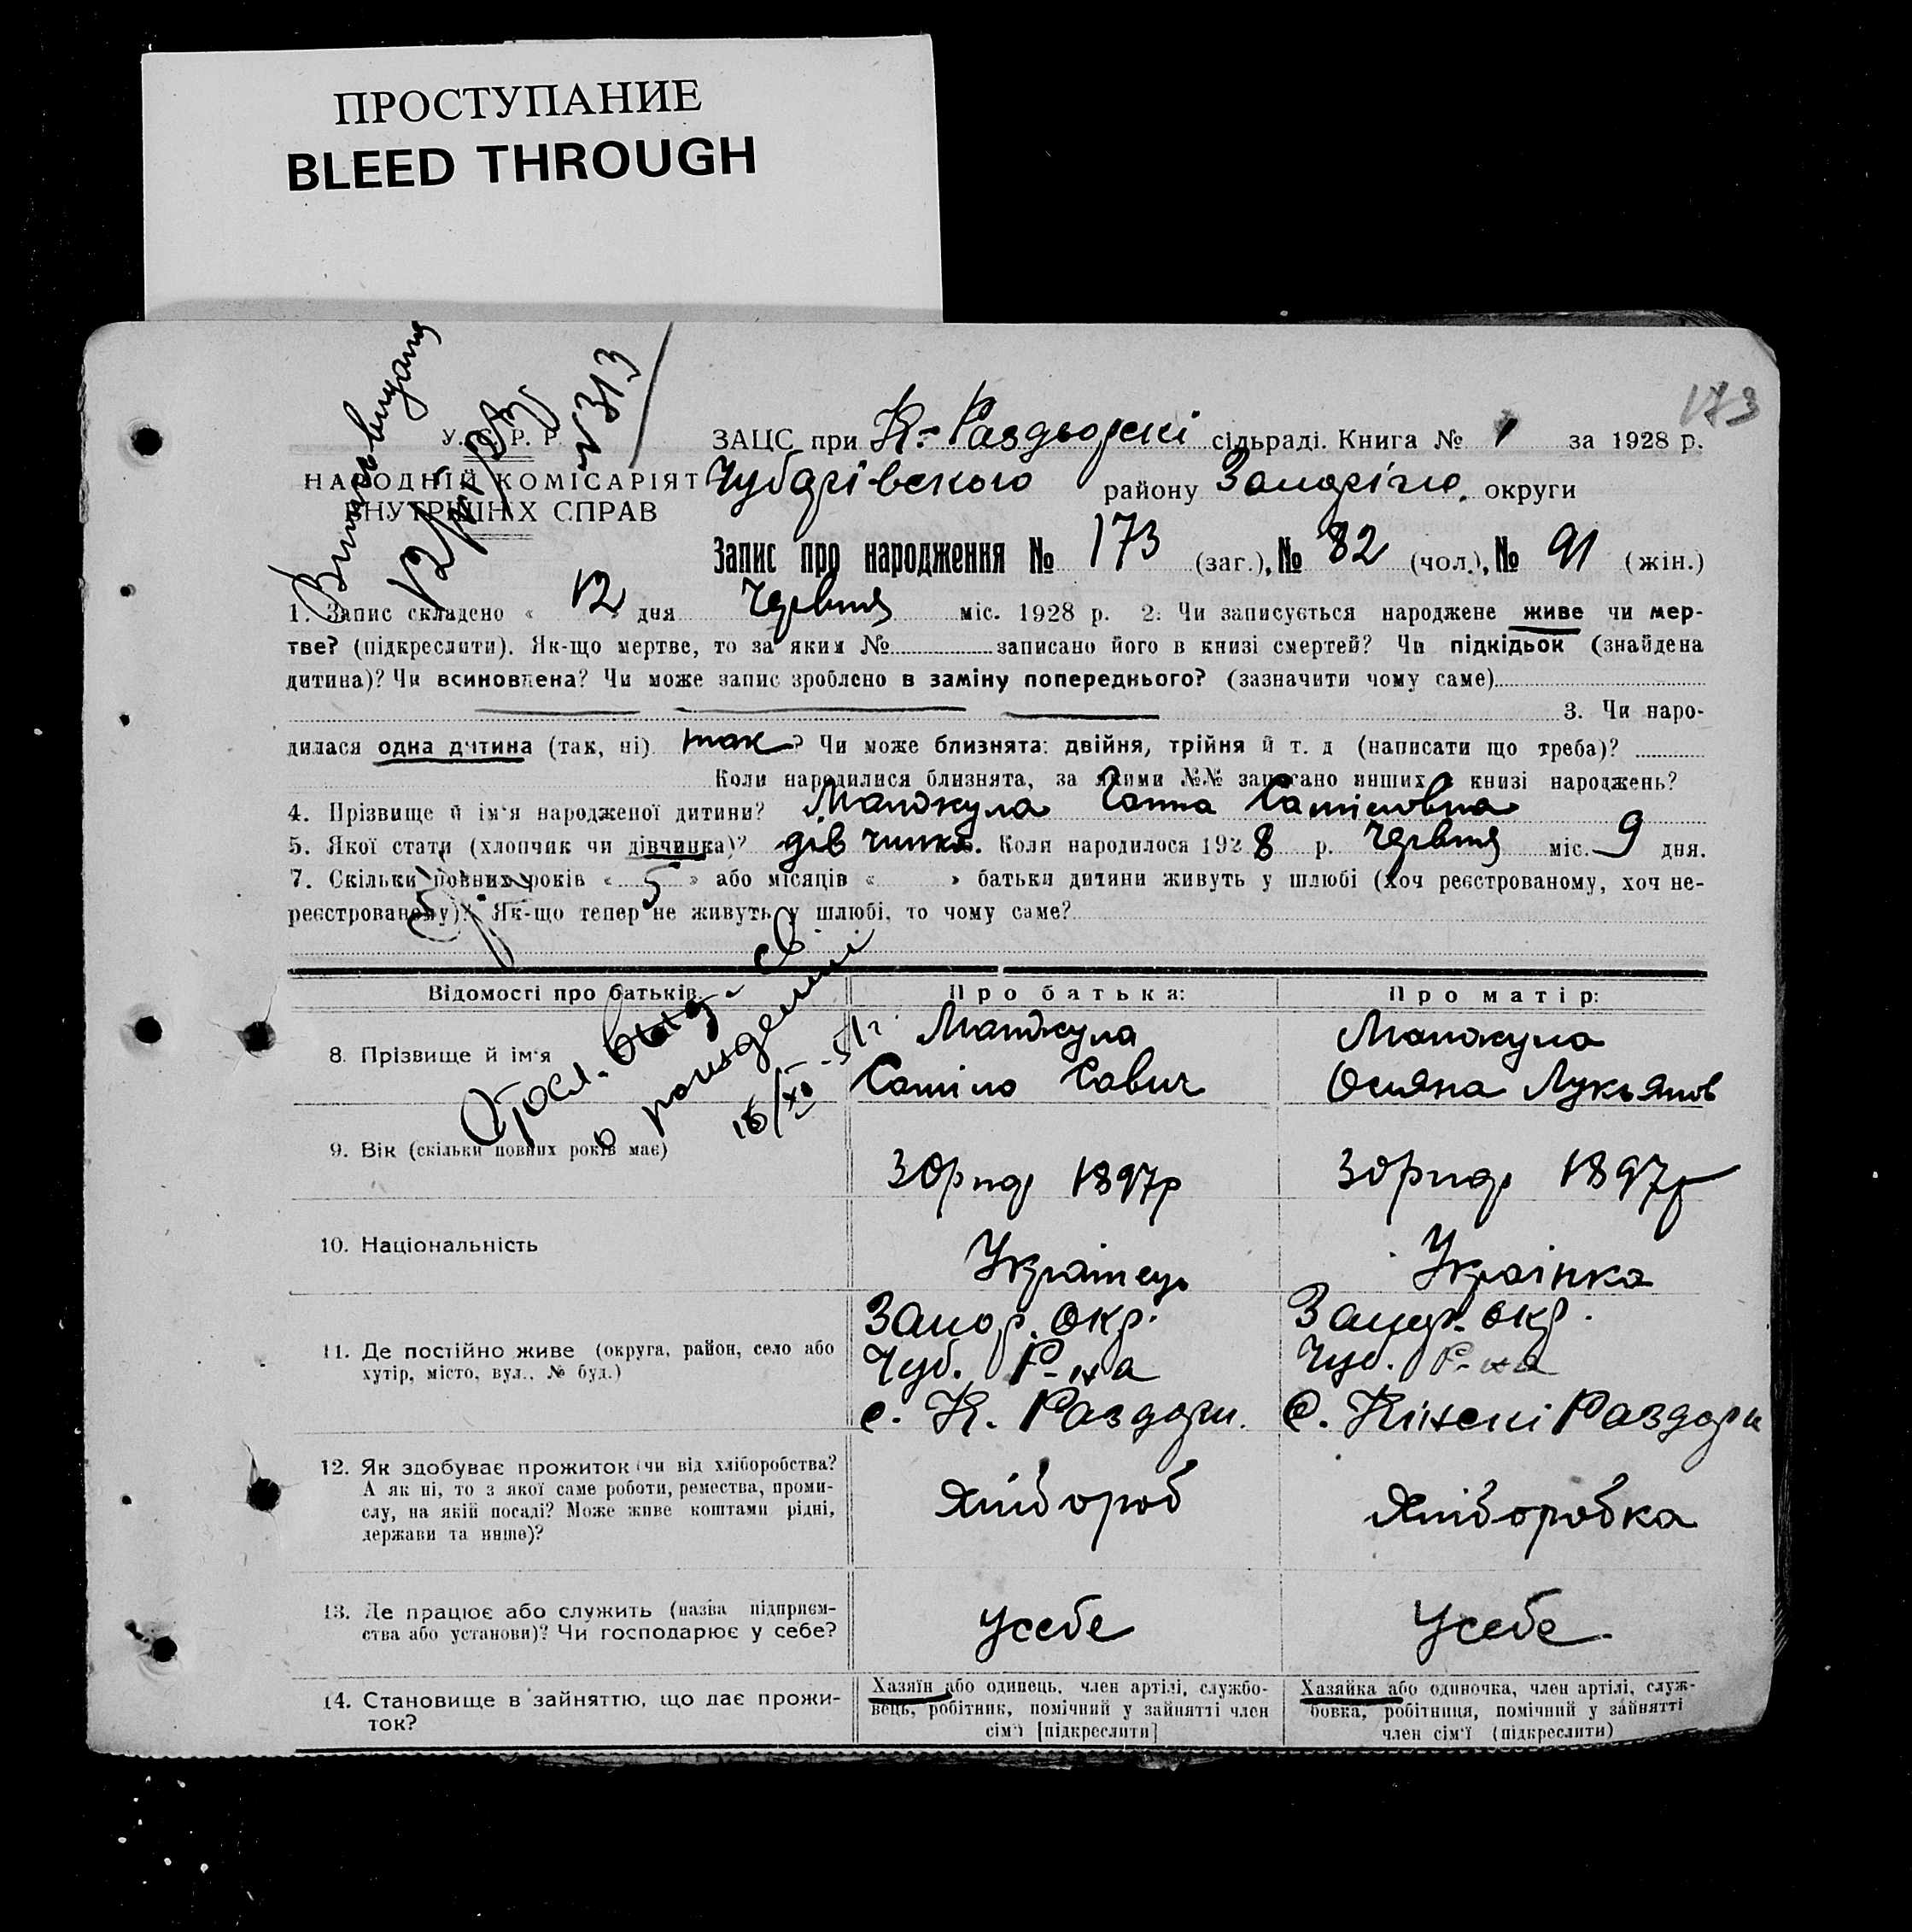 ПРОСТУПАНИЕ
BLEED THROUGH
173
У. С. Р. Р.
НАРОДНІЙ КОМІСАРІЯТ
ВНУТРІШНІХ СПРАВ
№ 313
ЗАЦС при К-Раздорскі сільраді. Книга № 1 за 1928 р.
Чубарівського району Запоріжо. округи
Запис про народження № 173 (заг.), № 82 (чол.), № 91 (жін.)
1. Запис складено « 12 дня Червня міс. 1928 р. 2. Чи записується народжене живе чи мер-
тве? (підкреслити). Як-що мертве, то за яким № записано його в книзі смертей? Чи підкідьок (знайдена
дитина)? Чи всиновлена? Чи може запис зроблено в заміну попереднього? (зазначити чому саме)
3. Чи наро-
дилася одна дитина (так, ні) так? Чи може близнята: двійня, трійня й т. д (написати що треба)?
Коли народилися близнята, за якими №№ записано инших в книзі народжень?
4. Прізвище й ім'я народженої дитини? Манжула Ганна
5. Якої стати (хлопчик чи дівчинка)? дівчинка. Коли народилося 1928 р. Червня міс. 9 дня.
7. Скільки повних років « 5 » або місяців « » батьки дитини живуть у шлюбі (хоч реєстрованому, хоч не-
реєстрованому)? Як-що тепер не живуть у шлюбі, то чому саме?
Відомості про батьків. Про батька: Про матір:
8. Прізвище й ім'я
Манжула
Савич
Манжула
Лукьянов
9. Вік (скільки повних років має)
30р нар 1897р
30р нар 1897р
10. Національність
Українець
Українка
11. Де постійно живе (округа, район, село або
хутір, місто, вул., № буд.)
Запор. окр.
Чуб. Р-на
с. К. Раздори.
Запор. окр.
Чуб. Р-на
с. Кінскі Раздори
12. Як здобуває прожиток (чи від хліборобства?
А як ні, то з якої саме роботи, ремества, проми-
слу, на якій посаді? Може живе коштами рідні,
держави та инше)?
Хлібороб
Хліборобка
13. Де працює або служить (назва підприєм-
ства або установи)? Чи господарює у себе?
усебе
усебе.
14. Становище в зайняттю, що дає прожи-
ток?
Хазяїн або одинець, член артілі, службо-
вець, робітник, помічний у зайнятті член
сім'ї [підкреслити]
Хазяйка або одиночка, член артілі, служ-
бовка, робітниця, помічний у зайнятті
член сім'ї (підкреслити)